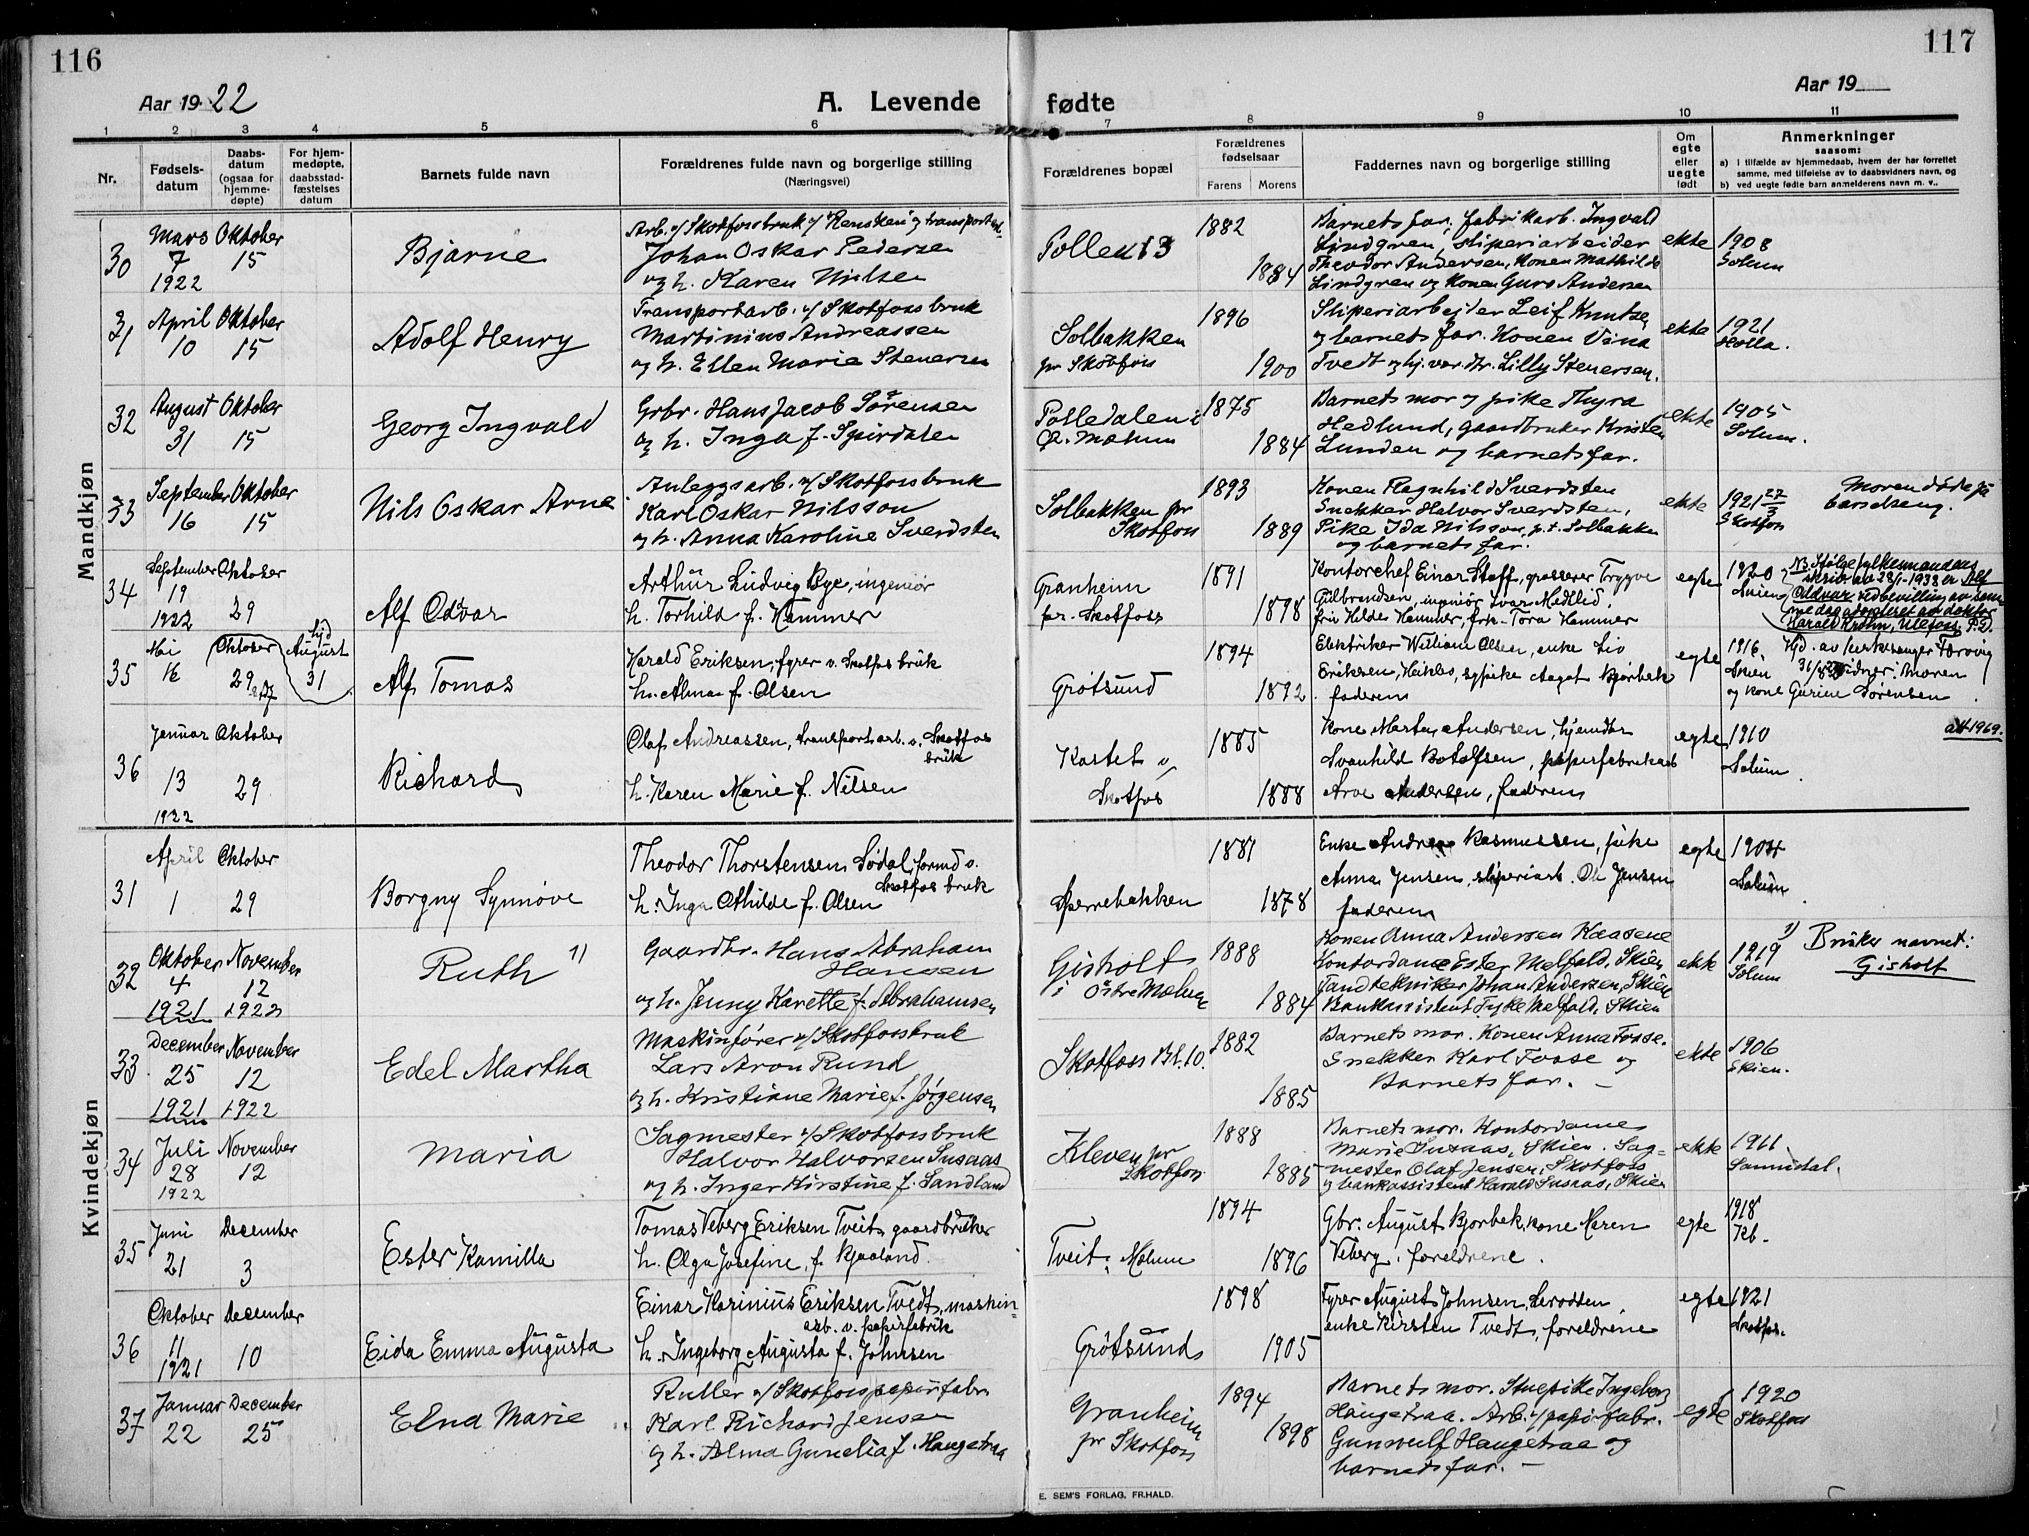 116
117
Aar 1922
A. Levende fødte
Aar 19
1 2 3 4 5 6 7 8 9 10 11
Nr.
Fødsels-
datum
Daabs-
datum
(ogsaa for
hjemme-
døpte)
For hjem-
medøpte,
daabsstad-
fæstelses
datum
Barnets fulde navn
Forældrenes fulde navn og borgerlige stilling
(Næringsvei)
Forældrenes bopæl
Forældrenes
fødselsaar
Farens Morens
Faddernes navn og borgerlige stilling
Om
egte
eller
uegte
født
Anmerkninger
saasom:
a) i tilfælde av hjemmedaab, hvem der har forrettet
samme, med tilføielse av to daabsvidners navn, og
b) ved uegte fødte barn anmelderens navn m. v..
Mandkjøn
30
Mars Oktober
7 15
1922
Bjarne
Arb. v/ Skotfoss bruk
Johan Oskar Pedersen
og h. Karen Nielsen
Pollen 13
1882
1884
Barnets far, fabrikarb. Ingvald
Lindgren, sliperiarbeider
Theodor Andersen, Konen Mathilde
Lindgren og Konen Guro Andersen
ekte
1908
Solum
31
April Oktober
10 15
Adolf Henry
Transportarb. v/ Skotfoss bruk
Martinius Andreassen
og h. Ellen Marie Stenersen
Solbakken
pr Skotfoss
1896
1900
Sliperiarbeiter Leif Knutsen
og barnets far. Konen
Tvedt og hj.vær. dtr. Lilly Stenersen.
ekte
1921
Holla.
32
August Oktober
31 15
Georg Ingvald
Grbr. Hans Jacob Sørensen
og h. Inga f. Spirdalen
Polledalen i
Melum
1875
1884
Barnets mor og pike Thyra
Hedlund, gaardbruker Kristen
Lunden og barnets far.
ekte
1905
Solum.
33
September Oktober
16 15
Nils Oskar Arne
Anleggsarb. v/ Skotfoss bruk
Karl Oskar Nilsson
og h. Anna Karoline Sverdsten
Solbakken pr
Skotfoss
1893
1889
Konen Ragnhild Sverdsten
Snekker Halvor Sverdsten,
Pike Ida Nilsson, p.t. Solbakken
og barnets far.
ekte
1921 27/3
Skotfoss
Moren døde på
barselseng.
34
September Oktober
19
1922 29
Alf Odvar
Arthur Ludvig Bye, ingeniør
h. Torhild f. Hammer
Granheim
pr. Skotfoss
1891
1898
Kontorchef Einar Staff, grosserer Trygve
Gulbrandsen, ingeniør Ivar Medlid,
fru Hilda Hammer, frk. Tora Hammer
egte
1920
Skien
NB Ifølge fylkesmandens
skriv av 28/1-1933 er Alf
Oddvar ved bevilling av sam-
me dag adopteret av doktor
Harald Krohn, Ulefoss. P.D.
35
Mai Oktober
29
hjd
August
31
Alf Tomas
Harald Eriksen, fyrer v. Skotfos bruk
h. Alma f. Olsen
Grøtsund
1894
1892
Elektriker William Olsen, enke Liv
Eriksen, sypike Aagot Bjørbek
faderen
egte
1916
Skien
Hjd. av kirkesanger Færøvig
moren
og kone Gurine Sørensen
36
Januar Oktober
13 29
1922
Richard
Olaf Andreassen, transport arb. v. Skotfos
bruk
h. Karen Marie f. Nilsen
Kastet v/
Skotfos
1885
1888
Kone Marta Andersen, hjemdtr
Svanhild Botolfsen, papirfabrikarb
Arve Andersen, faderen
egte
1910
Solum
att 1969.
Kvindekjøn
31
April Oktober
1 29
Borgny Synnøve
Theodor Thorstensen Sødal, formd v.
Skotfos bruk
h. Inga Othilde f. Olsen
Sperrebakken
1881
1878
Enke Andrea Rasmussen, pike
Anna Jensen, sliperiarb. Jensen
faderen
egte
1904
Solum
32
Oktober November
4 12
1921 1922
Ruth 1)
Gaardbr. Hans Abraham
Hansen
og h. Jenny Karette f. Abrahamsen
Gisholt
i Østre Melum
1888
1884
Konen Anna Andersen Kaasene
Kontordame Ester Melfald, Skien
Tandtekniker Johan Andersen, Skien
Bankassistent Melfald, Skien
ekte
1919
Solum
1) Bruker navnet:
Gisholt
33
December November
25 12
1921 1922
Edel Martha
Maskinfører v/ Skotfoss bruk
Lars Aron Rund
og h. Kristiane Marie f. Jørgensen
Skotfoss Bl. 10.
1882
1885
Barnets mor. Konen Anna Fosse.
Snekker Karl Fosse og
Barnets far. –
ekte
1906
Skien.
34
Juli November
28 12
1922
Maria
Sagmester v/ Skotfoss bruk
Halvor Halvorsen Susaas
og h. Inger Kirstine f. Sandland
Kleven pr
Skotfoss
1888
1885
Barnets mor. Kontordame
Marie Susaas, Skien. Sag-
mester Olaf Jensen, Skotfoss
og bankassistent Harald Susaas, Skien
ekte
1911
Sannidal.
35
Juni December
21 3
Ester Kamilla
Tomas Veberg Eriksen Tveit, gaardbruker
h. Olga Josefine, f. Bjaaland
Tveit, Melum
1894
1896
Gbr. August Bjørbek, kone Maren
Veberg, foreldrene.
egte
1918
36
Oktober December
11 10
1921
Eida Emma Augusta
Einar Karinius Eriksen Tvedt, maskin-
arb. v. papirfabrik
h. Ingeborg Augusta f. Johnsen
Grøtsund
1898
1905
Fyrer August Johnsen,
enke Kirsten Tvedt, foreldrene
egte
1921
Skotfos.
37
Januar December
22 25
Elna Marie
Ruller v/ Skotfoss papirfabr.
Karl Richard Jensen
og h. Alma Gunelia f. Haugetraa
Granheim
pr Skotfoss
1894
1898
Barnets mor. Stuepike Ingeborg
Haugetraa. Arb. v/ papirfabr.
Gunnulf Haugetraa og
barnets far. –
egte
1920
Skotfoss
E. SEM'S FORLAG, FR.HALD.